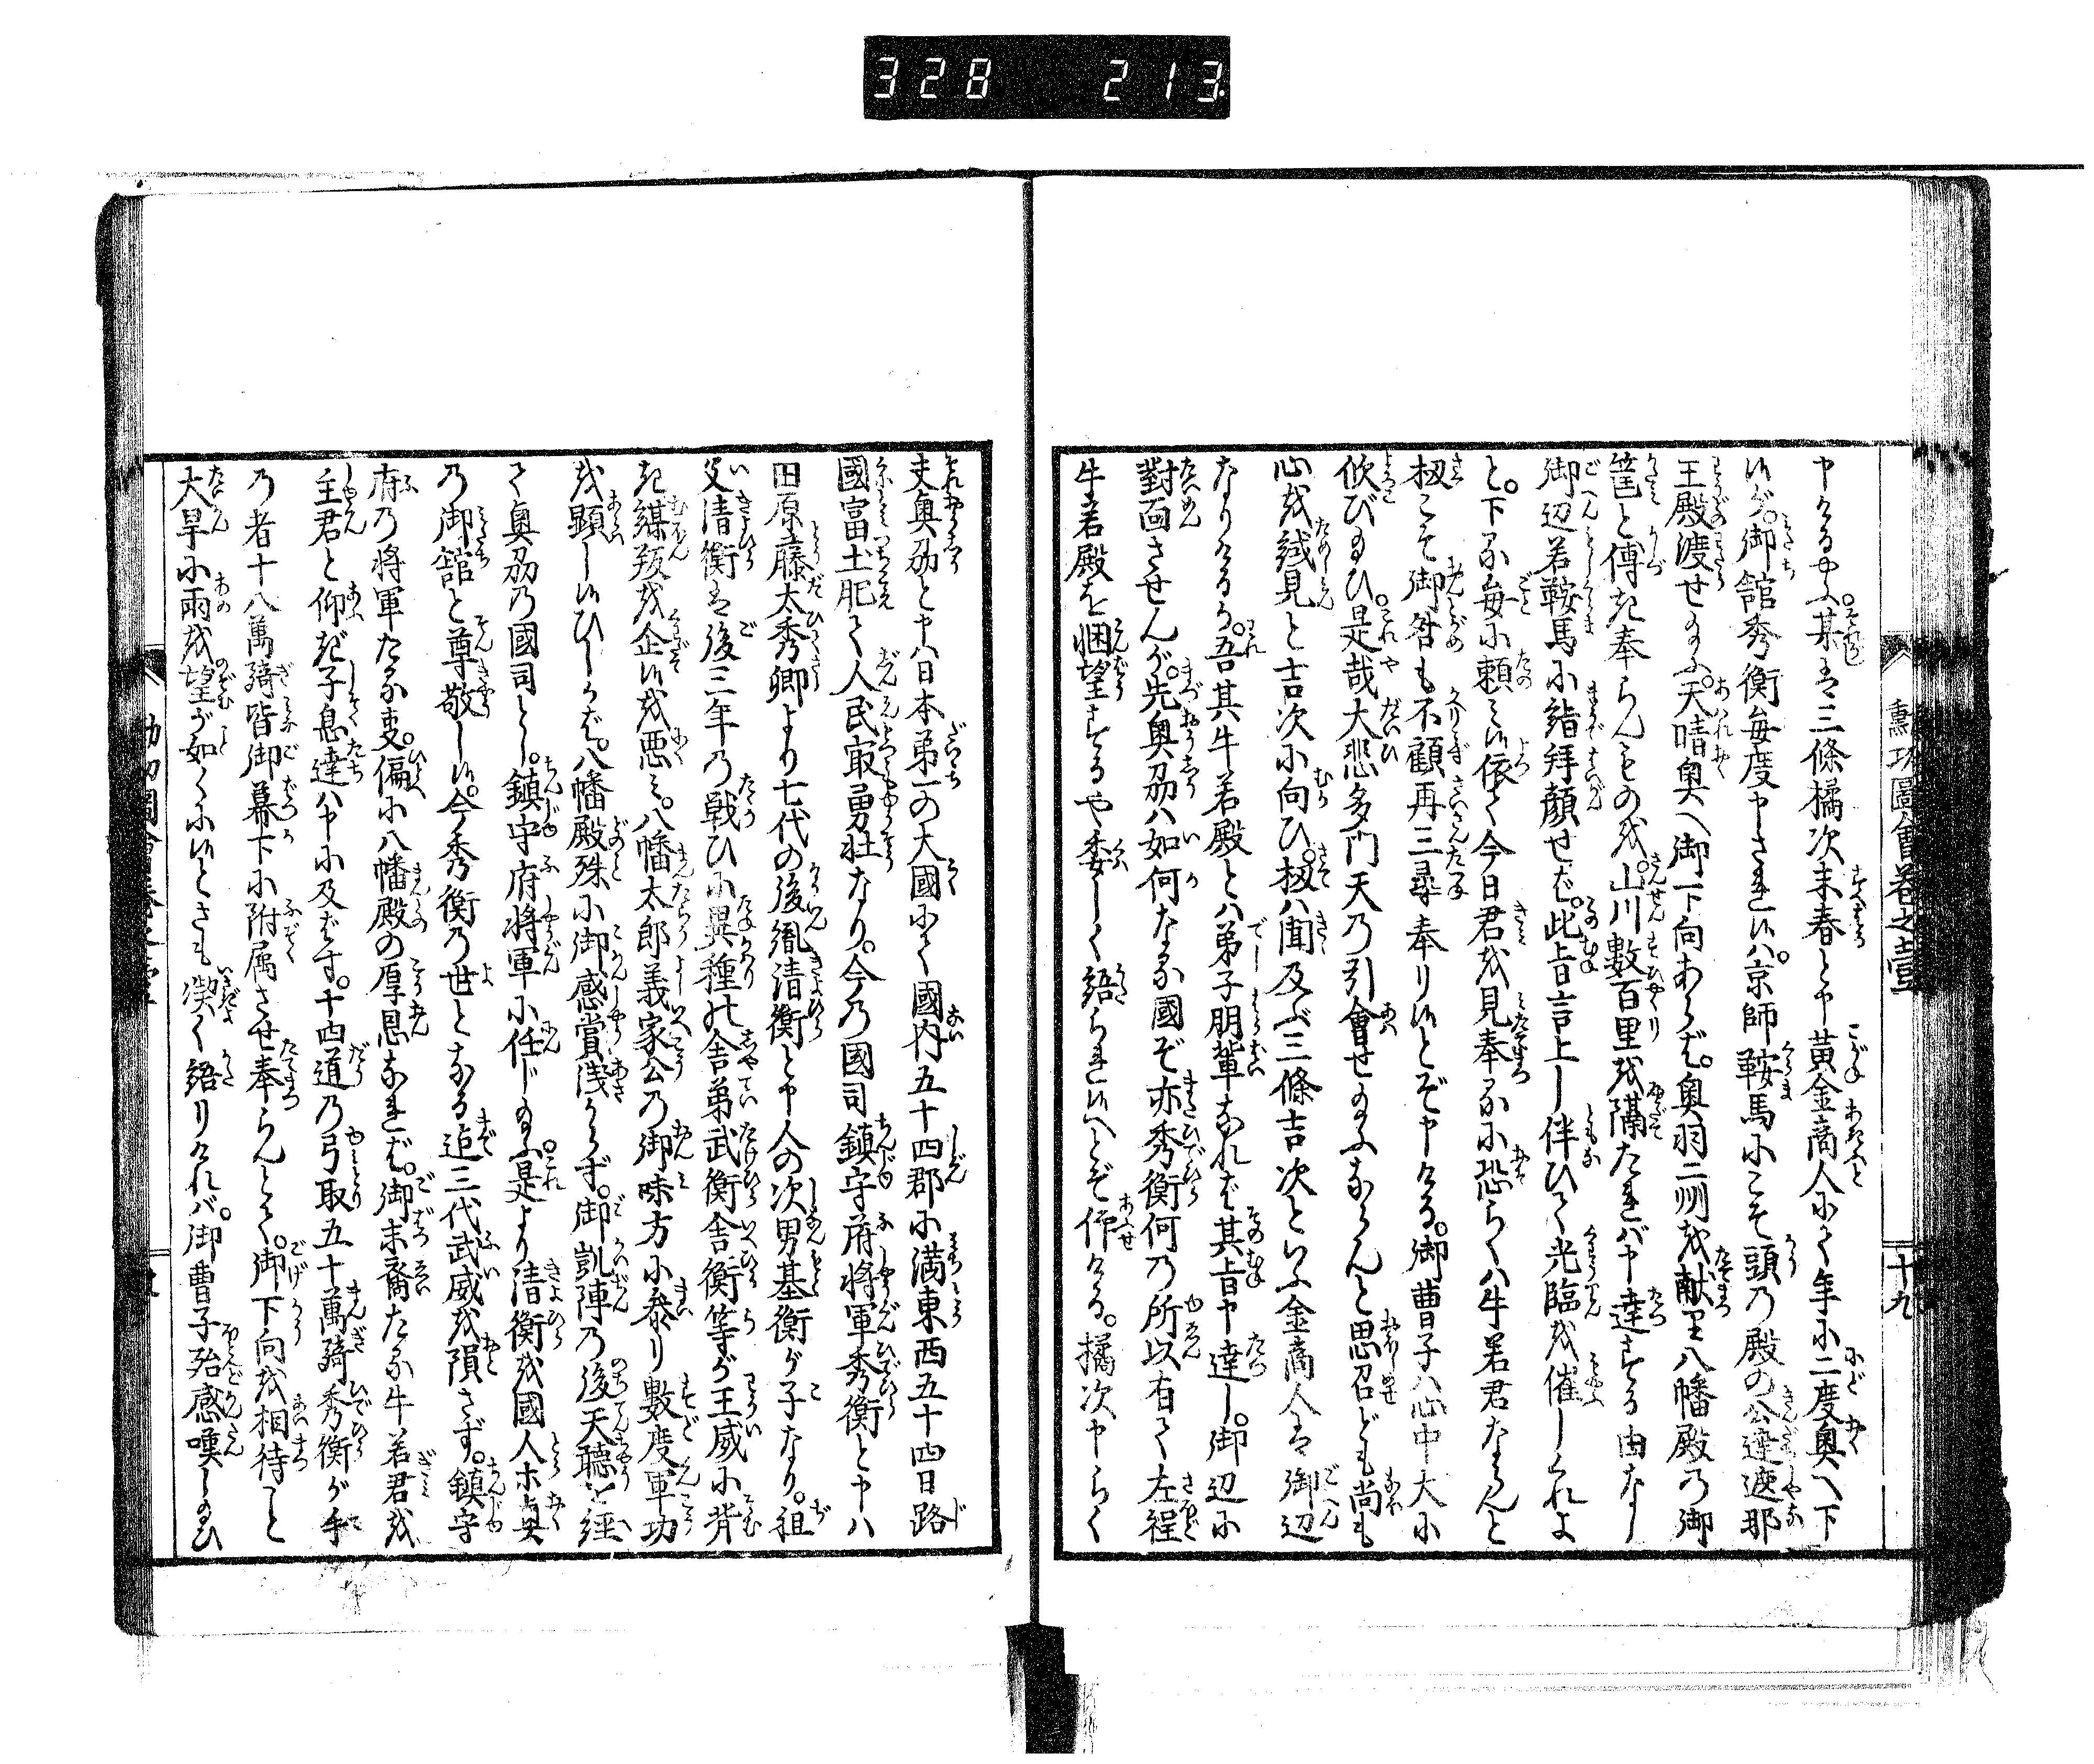 328 213
勲功圖會巻之壹 十九
申けるやふ。某は三條橘次末春と申黄金商人にて年に二度奥へ下
候が。御舘秀衡毎度申され候は。京師鞍馬にこそ頭の殿の公達遮那
王殿渡せ給ふ。天晴奥へ御下向あらば。奥羽二州を献り八幡殿の御
筐と傅き奉らんものを。山川數百里を隔たれバ申達する由なし
御辺若鞍馬に詣拜顔せば。此旨言上し伴ひて光臨を催しくれよ
と。下る毎に頼み候依て今日君を見奉るに恐らくハ牛若君ならんと
扨こそ御咎も不顧再三尋奉り候とぞ申ける。御曹子ハ心中大に
欣び給ひ。是哉大悲多門天の引會せ給ふならんと思召ども尚も
心を試見と吉次に向ひ。扨ハ聞及ぶ三條吉次といふ金商人は御辺
なりけるか。吾其牛若殿とハ弟子朋輩なれば其旨申達し。御辺に
對面させんが。先奥刕ハ如何なる國ぞ亦秀衡何の所以有て左程
牛若殿を悃望するや委しく語られ候へとぞ仰ける。橘次申らく
夫奥刕と申ハ日本第一の大國にて國内五十四郡に満東西五十四日路
國富土肥て人民寂勇壮なり。今の國司鎮守府将軍秀衡と申ハ
田原藤太秀卿より七代の後胤清衡と申人の次男基衡が子なり。祖
父清衡は後三年の戦ひに異種の舎弟武衡舎衡等が王威に背
き謀叛を企候を悪み。八幡太郎義家公の御味方に参り數度軍功
を顕し候ひしかば。八幡殿殊に御感賞浅からず。御凱陣の後天聴を経
て奥刕の國司とし。鎮守府将軍に任じ給ふ。是より清衡を國人ホ奥
の御舘と尊敬し候。今秀衡の世となる迠三代武威を隕さず。鎮守
府の将軍たる㕝。偏に八幡殿の厚恩なれば。御末裔たる牛若君を
主君と仰ぎ子息達ハ申に及ばす。十四道の弓取五十萬騎秀衡が手
の者十八萬騎皆御幕下に附属させ奉らんとて。御下向を相待こと
大旱に雨を望が如くに候とさも潔く語りけれバ。御曹子殆感嘆し給ひ